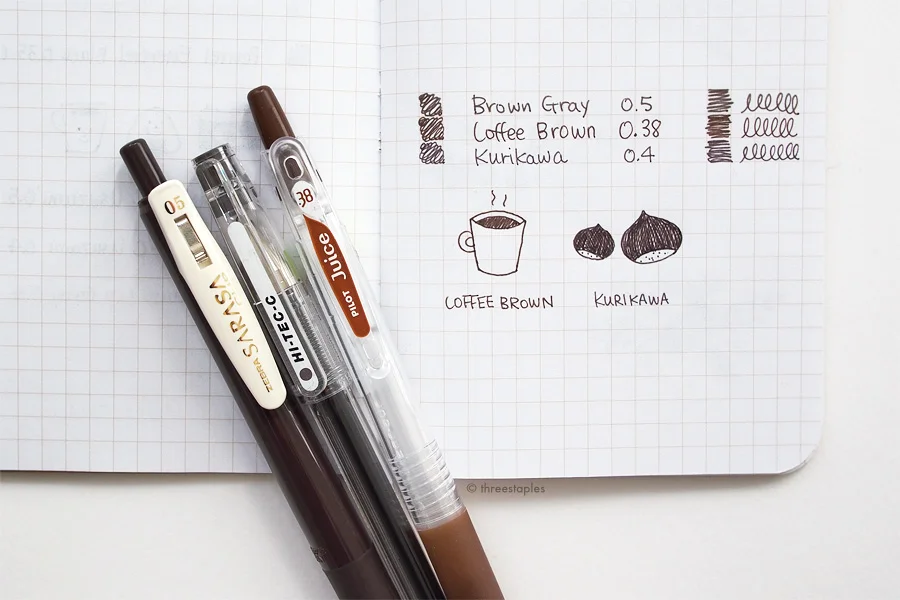 05
ZEBRA SARASA
HI-TEC-C
38
PILOT Juice
Brown Gray 0.5
Coffee Brown 0.38
Kurikawa 0.4
COFFEE BROWN
KURIKAWA
© threestaples